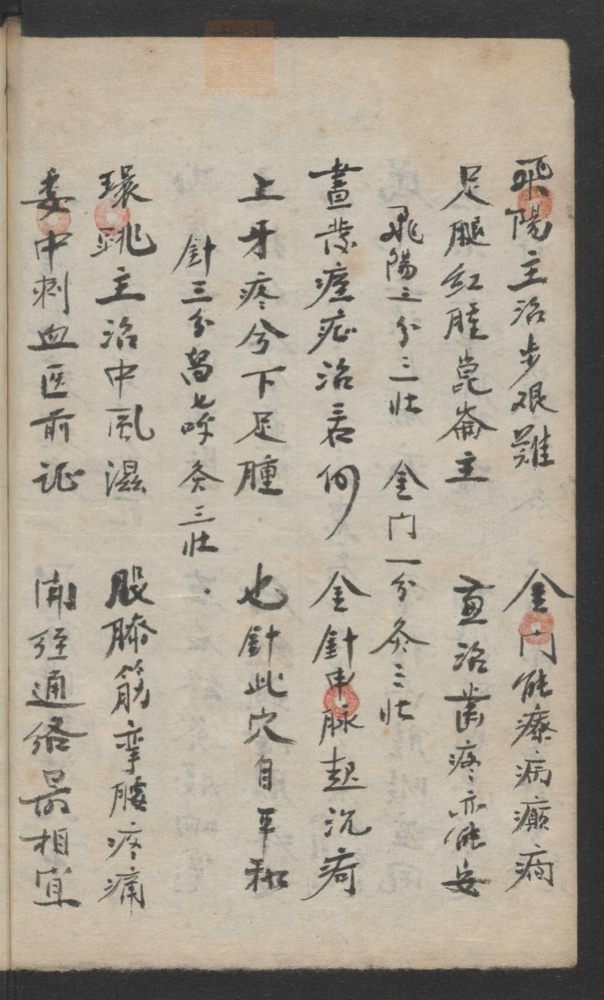 飛陽主治步艰難 金门能療病癲癇
足腿红腫崑崙主 兼治齒疼亦能安
飛陽三分三壮 金门一分灸三壮
晝發痓症治若何 金針申脉起沉疴
上牙疼兮下足腫 也針此穴自平和
針三分留七呼灸三壮
環跳主治中風濕 股膝筋挛腰疼痛
委中刺血医前证 開经通络最相宜